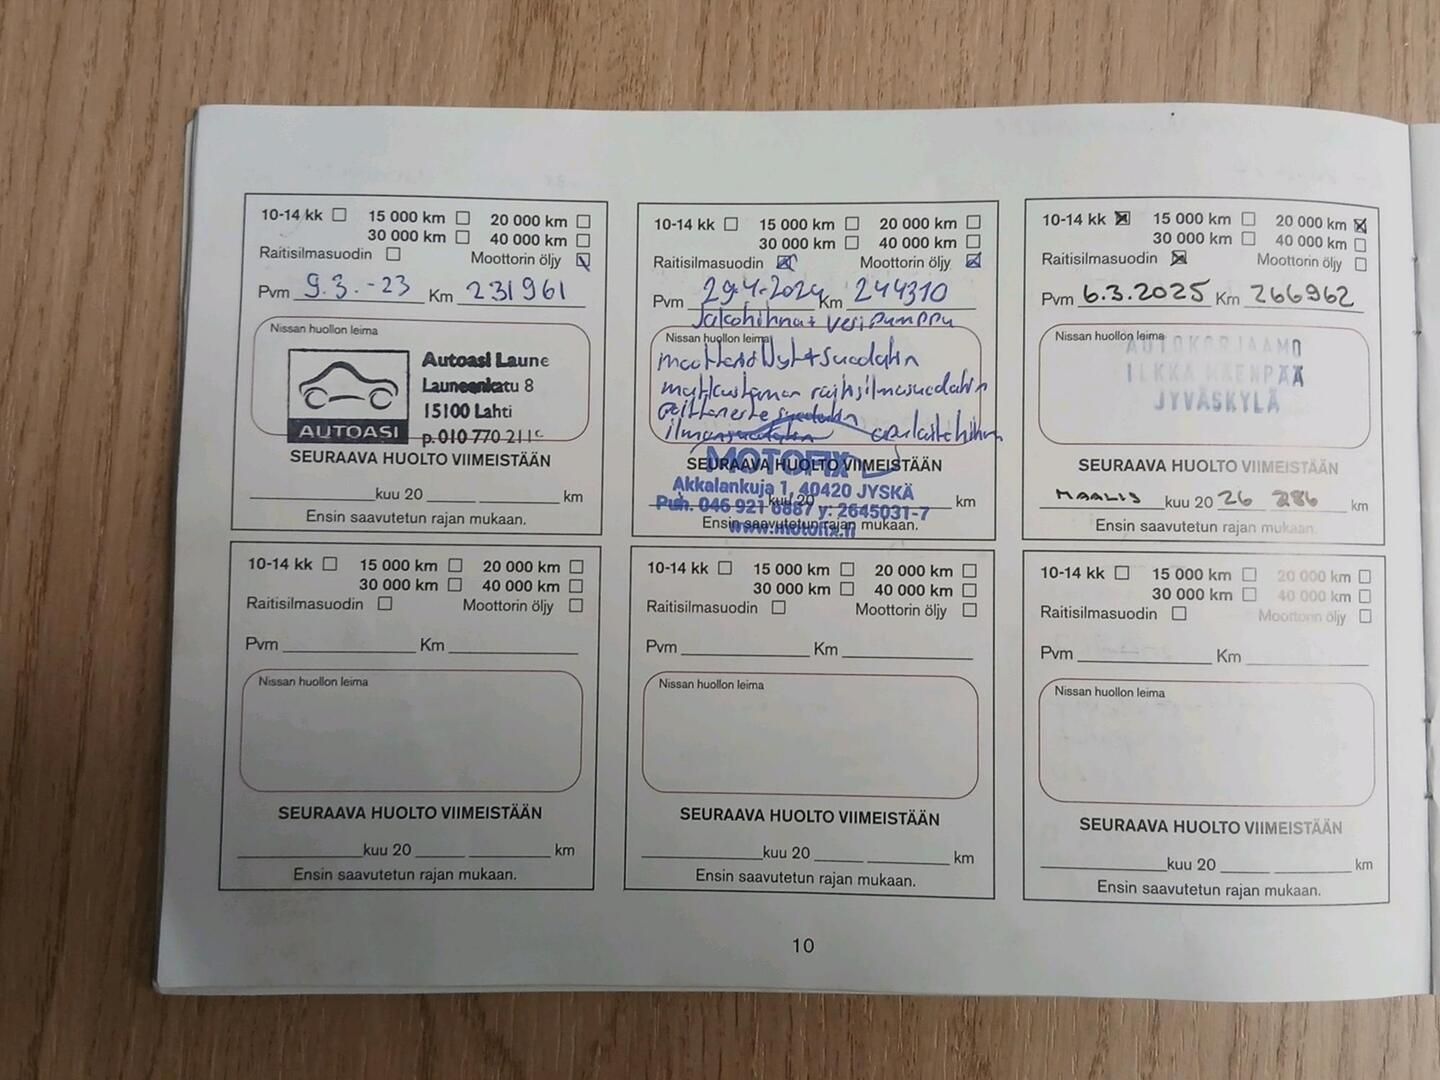 10-14 kk 15 000 km 20 000 km
30 000 km 40 000 km
Raitisilmasuodin Moottorin öljy
Pvm 9.3.-23 Km 231961
Nissan huollon leima
AUTOASI
Autoasi Laune
Launeenkatu 8
15100 Lahti
p. 010 770 211
SEURAAVA HUOLTO VIIMEISTÄÄN
kuu 20 km
Ensin saavutetun rajan mukaan.
10-14 kk 15 000 km 20 000 km
30 000 km 40 000 km
Raitisilmasuodin Moottorin öljy
Pvm 29.4.2024 Km 244310
Jakohihna + vesipumppu
Nissan huollon leima
moottoriöljyt + suodatin
matkustamon raitisilmasuodatin
suodatin
ilmansuodatin apulaitehihna
SEURAAVA HUOLTO VIIMEISTÄÄN
MOTOFIX
Akkalankuja 1, 40420 JYSKÄ
kuu 20 km
Puh. 046 921 6887 y: 2645031-7
Ensin saavutetun rajan mukaan.
www.motofix.fi
10-14 kk 15 000 km 20 000 km
30 000 km 40 000 km
Raitisilmasuodin Moottorin öljy
Pvm 6.3.2025 Km 266962
Nissan huollon leima
AUTOKORJAAMO
ILKKA MÄENPÄÄ
JYVÄSKYLÄ
SEURAAVA HUOLTO VIIMEISTÄÄN
MAALIS kuu 20 26 286 km
Ensin saavutetun rajan mukaan.
10-14 kk 15 000 km 20 000 km
30 000 km 40 000 km
Raitisilmasuodin Moottorin öljy
Pvm Km
Nissan huollon leima
SEURAAVA HUOLTO VIIMEISTÄÄN
kuu 20 km
Ensin saavutetun rajan mukaan.
10-14 kk 15 000 km 20 000 km
30 000 km 40 000 km
Raitisilmasuodin Moottorin öljy
Pvm Km
Nissan huollon leima
SEURAAVA HUOLTO VIIMEISTÄÄN
kuu 20 km
Ensin saavutetun rajan mukaan.
10-14 kk 15 000 km 20 000 km
30 000 km 40 000 km
Raitisilmasuodin Moottorin öljy
Pvm Km
Nissan huollon leima
SEURAAVA HUOLTO VIIMEISTÄÄN
kuu 20 km
Ensin saavutetun rajan mukaan.
10